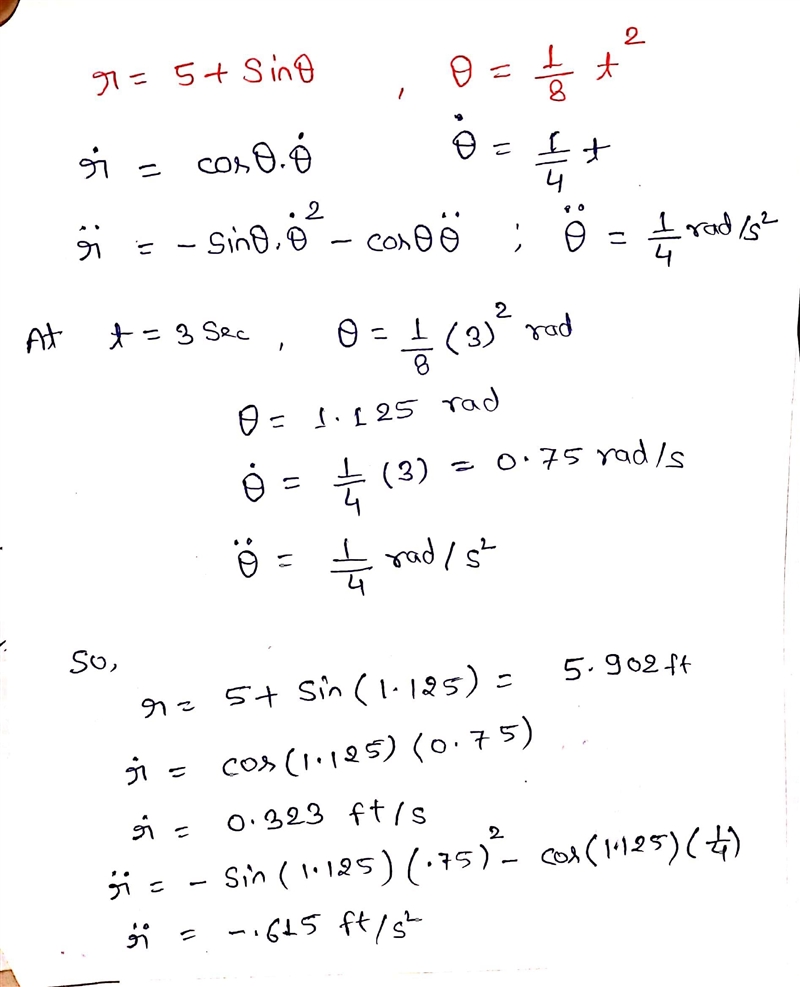 r = 5 + Sinθ , θ = 1/8 t²
ṙ = cosθ.θ̇ θ̇ = 1/4 t
r̈ = - Sinθ.θ̇² - cosθ θ̈ ; θ̈ = 1/4 rad/s²
At t = 3 Sec , θ = 1/8 (3)² rad
θ = 1.125 rad
θ̇ = 1/4 (3) = 0.75 rad/s
θ̈ = 1/4 rad/s²
So,
r = 5 + Sin(1.125) = 5.902 ft
ṙ = cos(1.125)(0.75)
ṙ = 0.323 ft/s
r̈ = - Sin(1.125)(.75)² - cos(1.125)(1/4)
r̈ = -.615 ft/s²